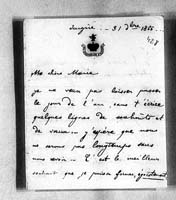 31 Xbre 1855
428
Ma chère Marie
je ne veux pas laisser passer
le jour de l'an sans t'écrire
quelques lignes de souhaits et
de vœux j'espère que nous
ne serons pas longtemps sans
nous revoir C'est le meilleur
souhait que je puisse former,